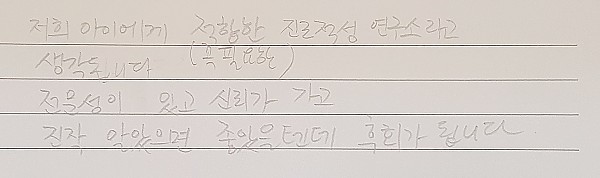 저희 아이에게 적합한 진로적성 연구소라고
생각됩니다 (꼭필요한)
전문성이 있고 신뢰가 가고
진작 알았으면 좋았을텐데 후회가 됩니다.